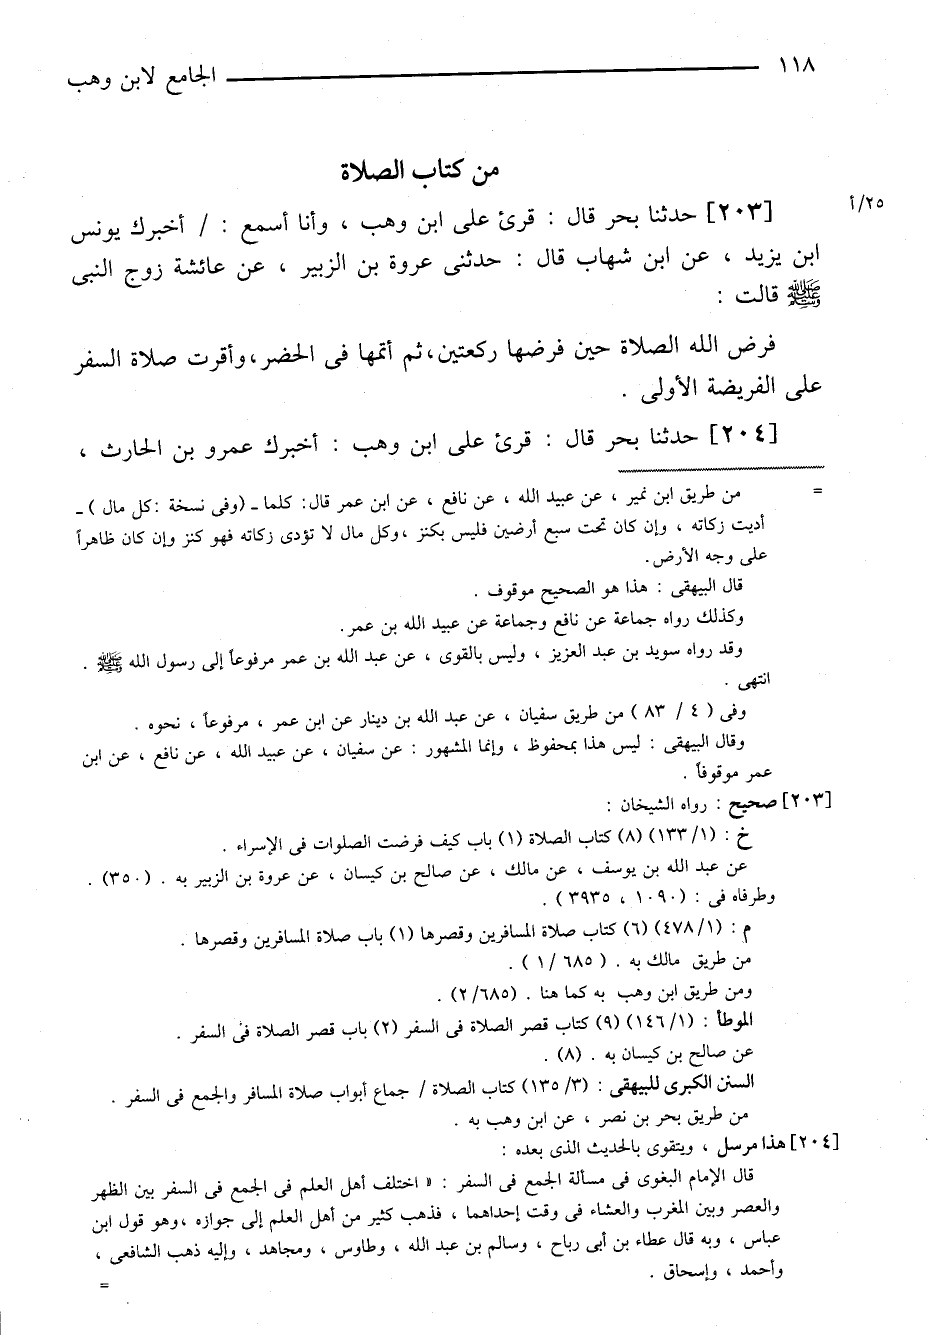 ١١٨ الجامع لابن وهب
من كتاب الصلاة
٢٥/أ
[٢٠٣] حدثنا بحر قال : قرئ على ابن وهب ، وأنا أسمع : / أخبرك يونس
ابن يزيد ، عن ابن شهاب قال : حدثنى عروة بن الزبير ، عن عائشة زوج النبى
ﷺ قالت :
فرض الله الصلاة حين فرضها ركعتين، ثم أتمها فى الحضر، وأقرت صلاة السفر
على الفريضة الأولى .
[٢٠٤] حدثنا بحر قال : قرئ على ابن وهب : أخبرك عمرو بن الحارث ،
= من طريق ابن نمير ، عن عبيد الله ، عن نافع ، عن ابن عمر قال: كلما ـ (وفى نسخة :كل مال ) ـ
أديت زكاته ، وإن كان تحت سبع أرضين فليس بكنز ، وكل مال لا تؤدى زكاته فهو كنز وإن كان ظاهراً
على وجه الأرض.
قال البيهقى : هذا هو الصحيح موقوف .
وكذلك رواه جماعة عن نافع وجماعة عن عبيد الله بن عمر.
وقد رواه سويد بن عبد العزيز ، وليس بالقوى ، عن عبد الله بن عمر مرفوعاً إلى رسول الله ﷺ .
انتهى .
وفى ( ٤ / ٨٣ ) من طريق سفيان ، عن عبد الله بن دينار عن ابن عمر ، مرفوعاً ، نحوه .
وقال البيهقى : ليس هذا بمحفوظ ، وإنما المشهور : عن سفيان ، عن عبيد الله ، عن نافع ، عن ابن
عمر موقوفاً .
[٢٠٣] صحيح : رواه الشيخان :
خ : (١/ ١٣٣) (٨) كتاب الصلاة (١) باب كيف فرضت الصلوات فى الإسراء .
عن عبد الله بن يوسف ، عن مالك ، عن صالح بن كيسان ، عن عروة بن الزبير به . (٣٥٠) .
وطرفاه فى : (١٠٩٠ ، ٣٩٣٥ ) .
م : (١/ ٤٧٨) (٦) كتاب صلاة المسافرين وقصرها (١) باب صلاة المسافرين وقصرها .
من طريق مالك به . ( ٦٨٥ /١ ) .
ومن طريق ابن وهب به كما هنا . (٢/٦٨٥) .
الموطأ : (١/ ١٤٦) (٩) كتاب قصر الصلاة فى السفر (٢) باب قصر الصلاة فى السفر .
عن صالح بن كيسان به . (٨) .
السنن الكبرى للبيهقى : (٣/ ١٣٥) كتاب الصلاة / جماع أبواب صلاة المسافر والجمع فى السفر .
من طريق بحر بن نصر ، عن ابن وهب به .
[٢٠٤] هذا مرسل ، ويتقوى بالحديث الذى بعده :
قال الإمام البغوى فى مسألة الجمع فى السفر : « اختلف أهل العلم فى الجمع فى السفر بين الظهر
والعصر وبين المغرب والعشاء فى وقت إحداهما ، فذهب كثير من أهل العلم إلى جوازه ، وهو قول ابن
عباس ، وبه قال عطاء بن أبى رباح ، وسالم بن عبد الله ، وطاوس ، ومجاهد ، وإليه ذهب الشافعى ،
وأحمد ، وإسحاق . =